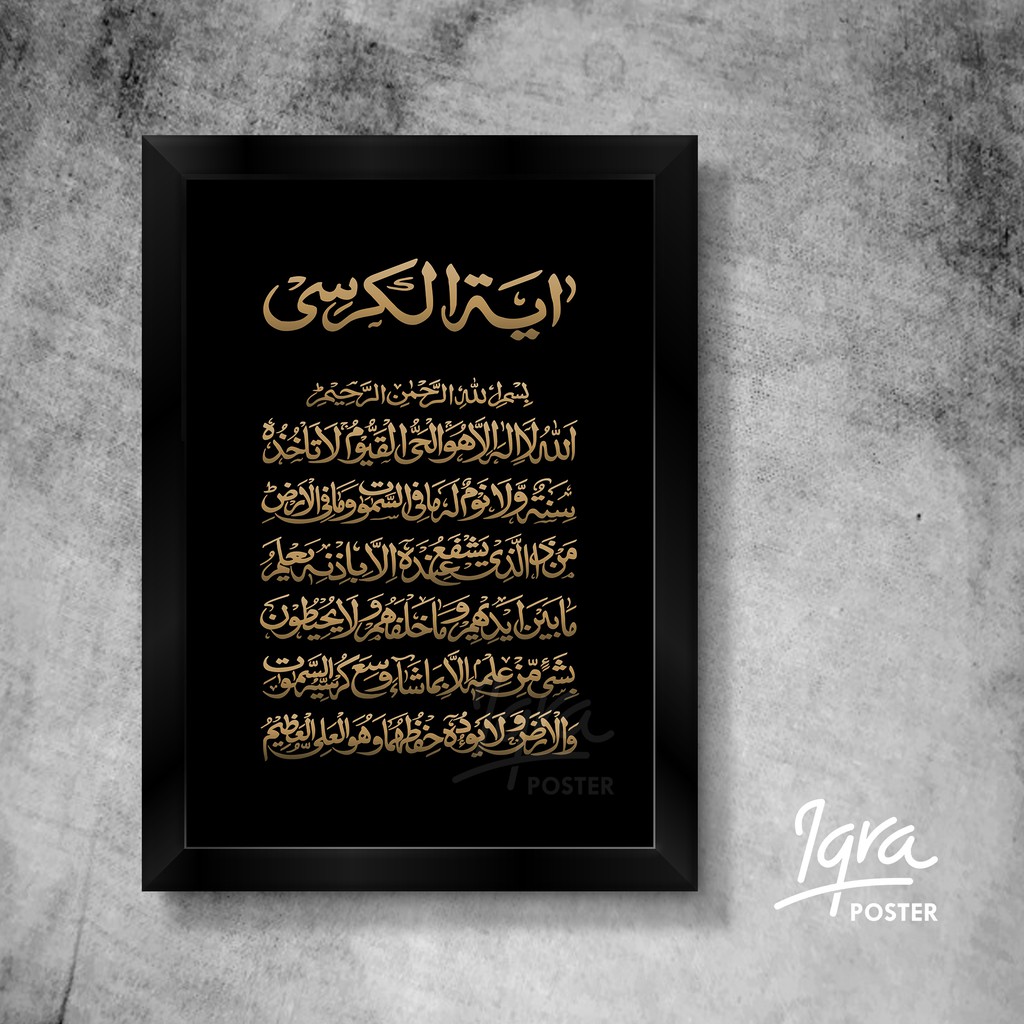 اية الكرسى
بِسْمِ اللهِ الرَّحْمٰنِ الرَّحِيْمِ
اَللهُ لَا اِلٰهَ اِلَّا هُوَ الْحَىُّ الْقَيُّوْمُ لَا تَأْخُذُهٗ
سِنَةٌ وَّلَا نَوْمٌ لَهٗ مَا فِى السَّمٰوٰتِ وَمَا فِى الْاَرْضِ
مَنْ ذَا الَّذِىْ يَشْفَعُ عِنْدَهٗ اِلَّا بِاِذْنِهٖ يَعْلَمُ
مَا بَيْنَ اَيْدِيْهِمْ وَمَا خَلْفَهُمْ وَلَا يُحِيْطُوْنَ
بِشَىْءٍ مِّنْ عِلْمِهٖ اِلَّا بِمَا شَاءَ وَسِعَ كُرْسِيُّهُ السَّمٰوٰتِ
وَالْاَرْضَ وَلَا يَئُوْدُهٗ حِفْظُهُمَا وَهُوَ الْعَلِىُّ الْعَظِيْمُ
Iqra
POSTER
Iqra
POSTER